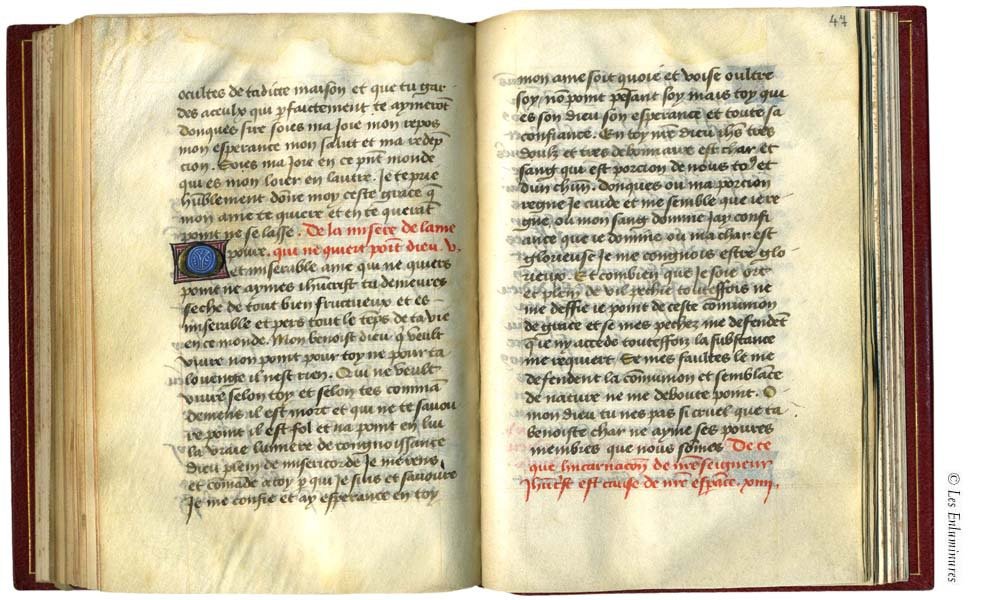 ocultes de ta dicte maison et que tu gar-
des a ceulx qui pfaictement te aymerōt
donques sire soies ma joie mon repos
mon esperance mon salut et ma redēp
cion. Soies ma joie en ce pn̄t monde
qui es mon loier en lautre. Je te prie
hūblement dōne moy ceste grace q̄
mon ame te quiere et en te querāt
point ne se lasse. De la misere de lame
poure. qui ne quiert poīt dieu. v.
O et miserable ame qui ne quiers
point ne aymes ihūcrist tu demeures
seche de tout bien fructueux et es
miserable et pers tout le tēps de ta vie
en ce monde. Mon benoist dieu q̄ veult
vivre non point pour toy ne pour ta
louenge il nest rien. Qui ne veult
vivre selon toy et selon tes commā
demens il est mort et qui ne te savou
re point il est fol et na point en lui
la vraie lumiere de congnoissance
Dieu plein de misericorde Je me rens
et cōmāde a toy p qui je suis et savoure
Je me confie et ay esperance en toy
47
mon ame soit quoie et voise oultre
soy, nō point pēsant soy mais toy qui
es son dieu son esperance et toute sa
confiance. En toy nr̄e dieu ihs tres
doulz et tres debonnaire est char et
sang qui est porcion de nous to⁹ et
dun chūn. donques ou ma porcion
regne je cuide et me semble que ie re
gne, ou mon sang domine Jay confi
ance que ie domine, ou ma char est
glorieuse Je me congnois estre glo
rieux. Et combien que Je soie ort
et plein de vil pechie toutesfois ne
me deffie ie point de ceste cōmunion
de grace et se mes pechez me defendēt
que ny accede toutesfoiz la substance
me requiert Se mes faultes le me
defendent la cōmunion et semblāce
de nature ne me deboute point. O
mon dieu tu nes pas si cruel que ta
benoiste char ne ayme ses poures
membres que nous sōmes De ce
que lincarnacōn de nr̄eseigneur
Jhūcrist est cause de nr̄e espāce. xiiij.
© Les Enluminures